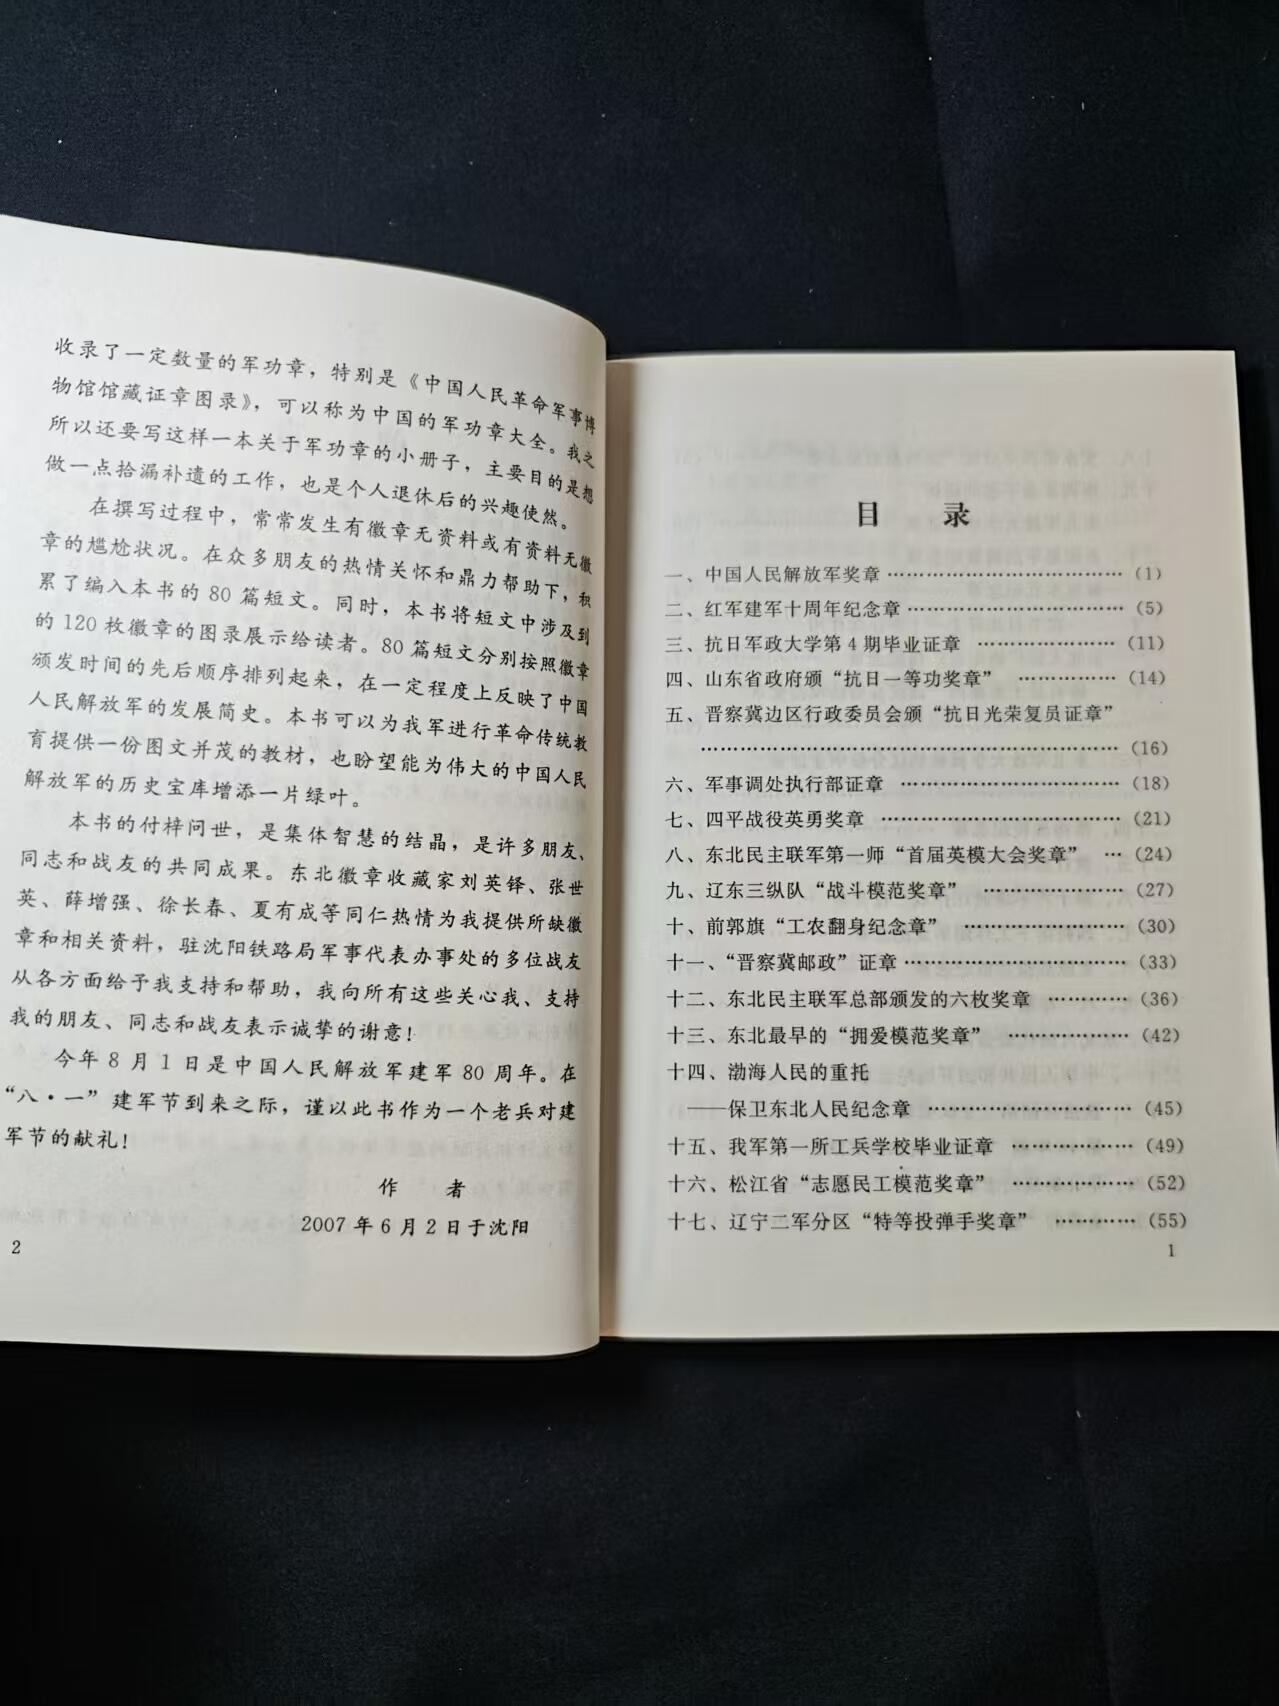 收录了一定数量的军功章，特别是《中国人民革命军事博
物馆馆藏证章图录》，可以称为中国的军功章大全。我之
所以还要写这样一本关于军功章的小册子，主要目的是想
做一点拾漏补遗的工作，也是个人退休后的兴趣使然。
在撰写过程中，常常发生有徽章无资料或有资料无徽
章的尴尬状况。在众多朋友的热情关怀和鼎力帮助下，积
累了编入本书的80篇短文。同时，本书将短文中涉及到
的120枚徽章的图录展示给读者。80篇短文分别按照徽章
颁发时间的先后顺序排列起来，在一定程度上反映了中国
人民解放军的发展简史。本书可以为我军进行革命传统教
育提供一份图文并茂的教材，也盼望能为伟大的中国人民
解放军的历史宝库增添一片绿叶。
本书的付梓问世，是集体智慧的结晶，是许多朋友、
同志和战友的共同成果。东北徽章收藏家刘英铎、张世
英、薛增强、徐长春、夏有成等同仁热情为我提供所缺徽
章和相关资料，驻沈阳铁路局军事代表办事处的多位战友
从各方面给予我支持和帮助，我向所有这些关心我、支持
我的朋友、同志和战友表示诚挚的谢意！
今年8月1日是中国人民解放军建军80周年。在
“八·一”建军节到来之际，谨以此书作为一个老兵对建
军节的献礼！
作　者
2007年6月2日于沈阳
2
目　录
一、中国人民解放军奖章 ……………………………… （1）
二、红军建军十周年纪念章 …………………………… （5）
三、抗日军政大学第4期毕业证章 …………………… （11）
四、山东省政府颁“抗日一等功奖章” …………… （14）
五、晋察冀边区行政委员会颁“抗日光荣复员证章”
……………………………………………………… （16）
六、军事调处执行部证章 ……………………………… （18）
七、四平战役英勇奖章 ………………………………… （21）
八、东北民主联军第一师“首届英模大会奖章” … （24）
九、辽东三纵队“战斗模范奖章” ………………… （27）
十、前郭旗“工农翻身纪念章” …………………… （30）
十一、“晋察冀邮政”证章 …………………………… （33）
十二、东北民主联军总部颁发的六枚奖章 ………… （36）
十三、东北最早的“拥爱模范奖章” ……………… （42）
十四、渤海人民的重托
——保卫东北人民纪念章 ………………………… （45）
十五、我军第一所工兵学校毕业证章 ……………… （49）
十六、松江省“志愿民工模范奖章” ……………… （52）
十七、辽宁二军分区“特等投弹手奖章” ………… （55）
1